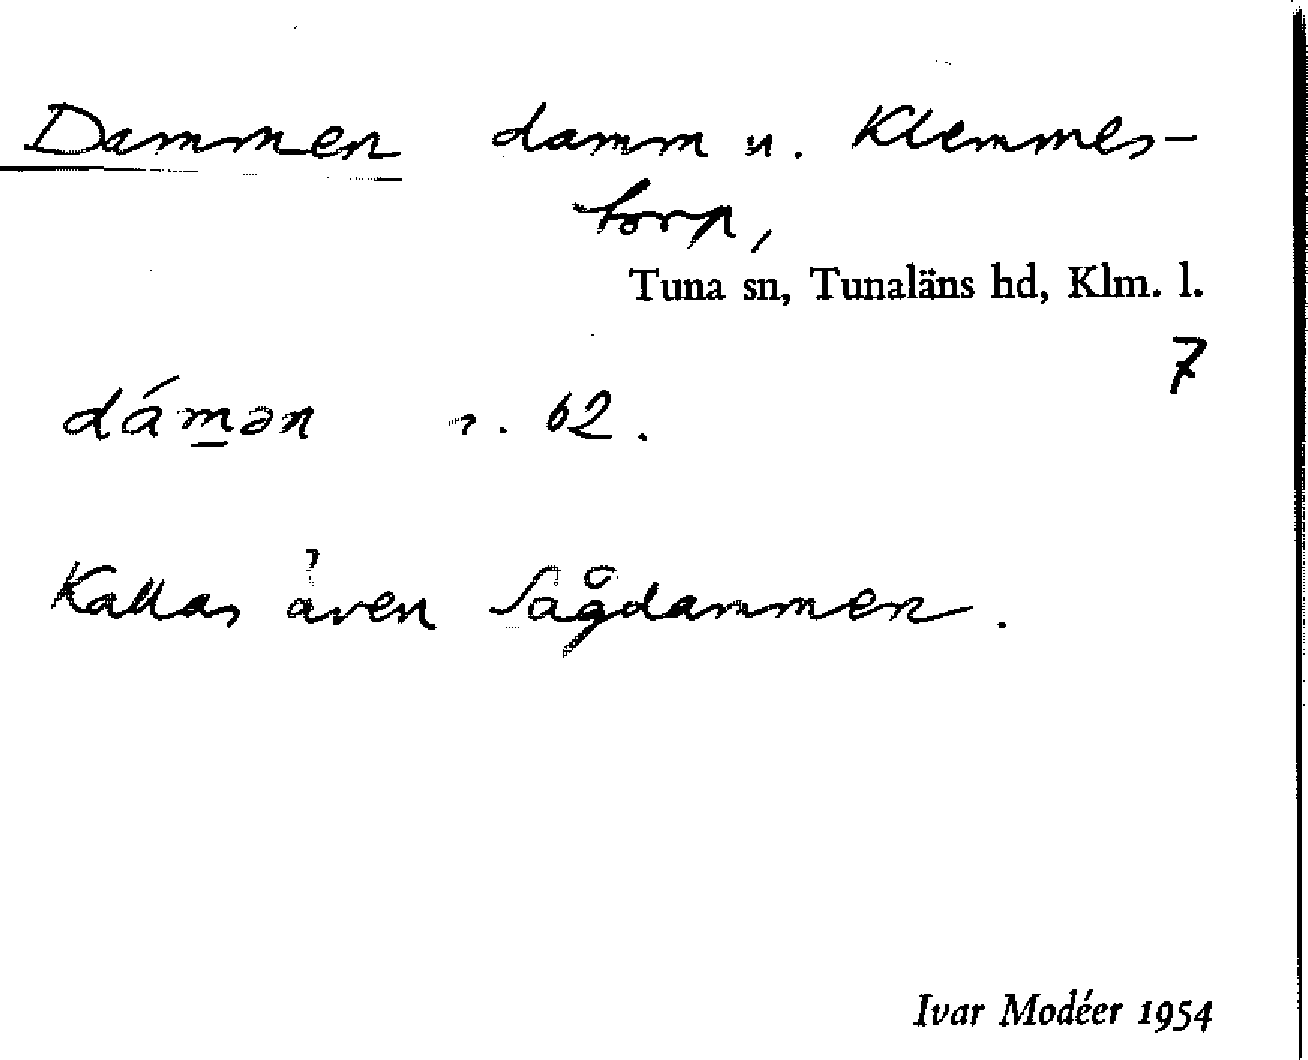 Dammen damm u. Klemmes-
torp,
Tuna sn, Tunaläns hd, Klm. l.
7
dámən 62.
Kallas även Sågdammen.
Ivar Modéer 1954